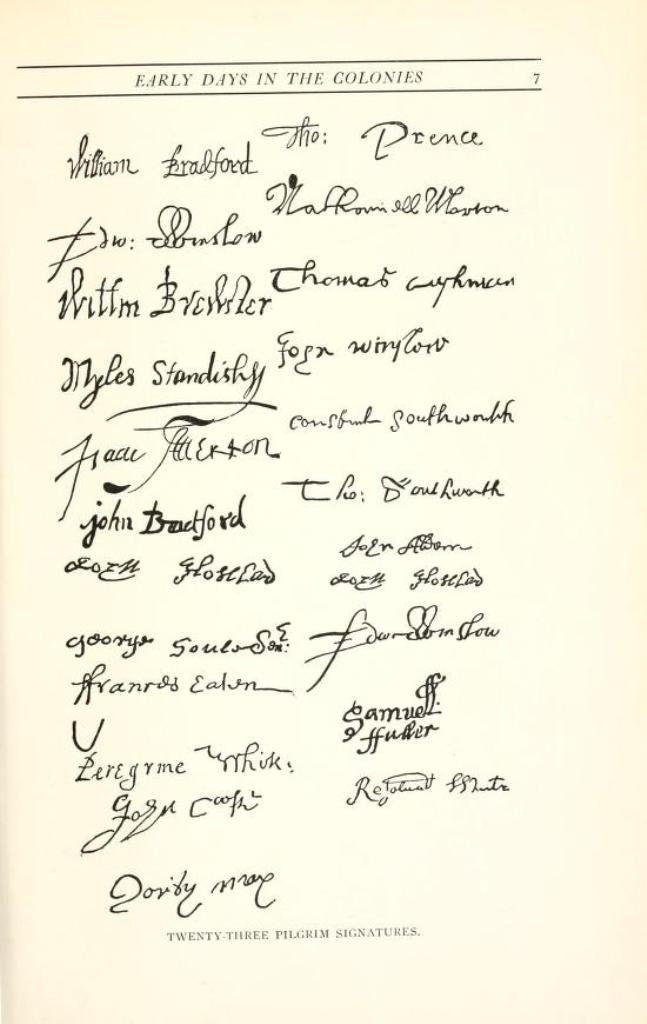 EARLY DAYS IN THE COLONIES 7
William Bradford
Tho: Prence
Nathaniell Morton
Edw: Winslow
Thomas Cushman
Willm Brewster
John winslow
Myles Standish
constant Southworth
Isaac Allerton
Tho: Southworth
john Bradford
John Alden
George Soule Senr:
Edw: Winslow
ffrancis Eaton
Samuell
ffuller
Peregrine White:
Resolved White
John Cooke
TWENTY-THREE PILGRIM SIGNATURES.